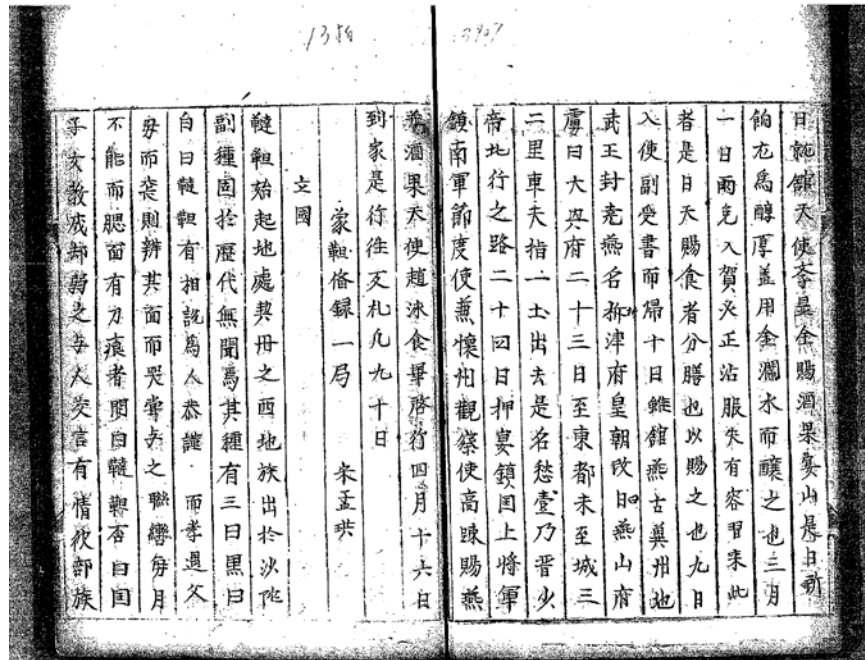 1359
3907
日就館天使李是全賜酒果宴山是日所
餉尤爲醇厚盖用金瀾水而釀之也三月
一日雨免入賀
正沾服失有容習来此
者是日天賜食者分膳也以賜之也九日
入使副受書而歸十日
館燕古冀州地
武王封堯燕名折津府皇朝改曰燕山府
虜曰大興府二十三日至東都未至城三
二里車夫指一土出去是名愁臺乃晋少
帝北行之路二十四日押宴鎮国上將軍
鎮南軍節度使兼懷州觀察使高
賜燕
兼酒果天使趙泳食畢啓行四月十六日
到家是行徃
札凡九十日
蒙韃偹録一局 宋孟珙
立國
韃靼始起地處契丹之西地族出於沙陁
副種固於歷代無聞焉其種有三曰黒曰
白曰韃靼有相説爲人恭謹 而孝遇父
母而喪則
其面而哭嘗与之聯轡每月
不能而腮面有刀痕者問曰韃靼否曰国
子女教成却弱之与人交言有情彼部族